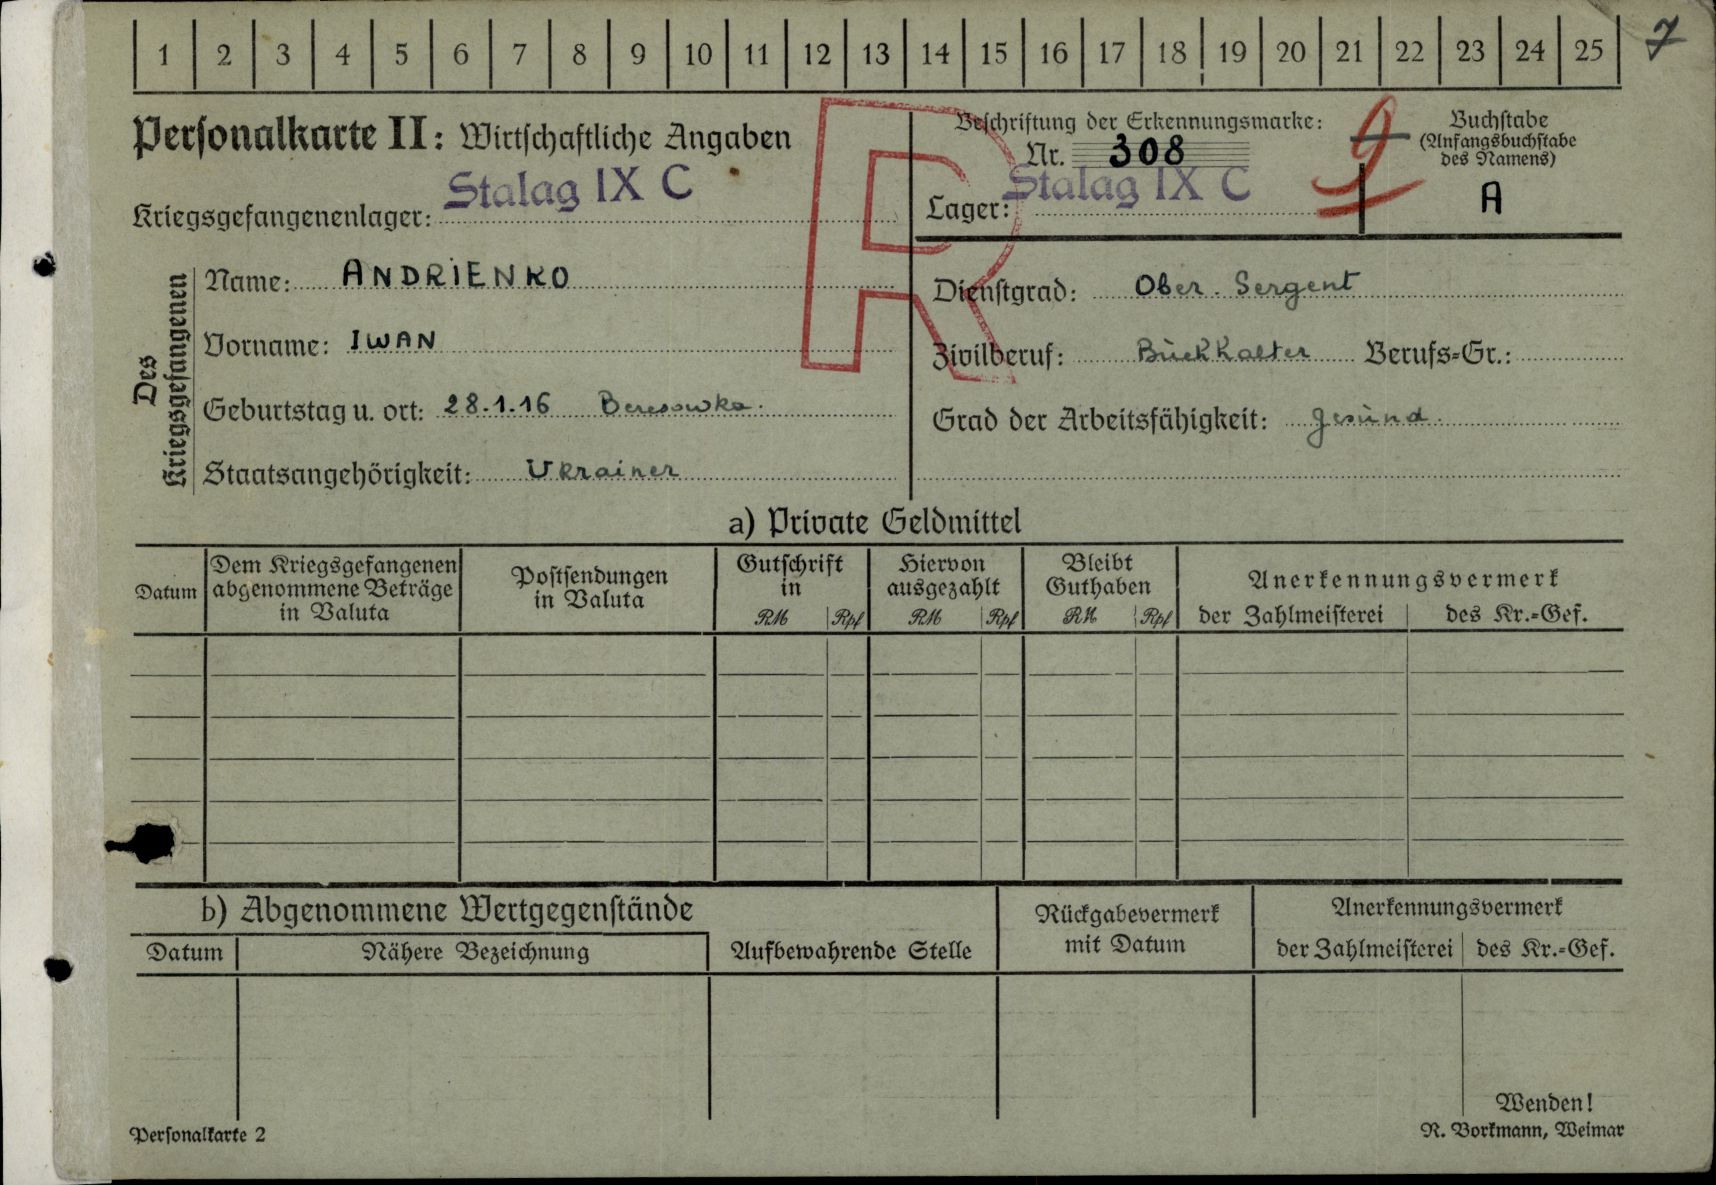 1 2 3 4 5 6 7 8 9 10 11 12 13 14 15 16 17 18 19 20 21 22 23 24 25
7
Personalkarte II: Wirtschaftliche Angaben
Kriegsgefangenenlager: Stalag IX C
R
Beschriftung der Erkennungsmarke:
Nr. 308
Lager: Stalag IX C
9
Buchstabe
(Anfangsbuchstabe
des Namens)
A
Des
Kriegsgefangenen
Name: ANDRIENKO
Vorname: IWAN
Geburtstag u. ort: 28.1.16 Beresowka.
Staatsangehörigkeit: Ukrainer
Dienstgrad: Ober. Sergent
Zivilberuf: Buchhalter Berufs-Gr.:
Grad der Arbeitsfähigkeit: gesund.
a) Private Geldmittel
Datum
Dem Kriegsgefangenen
abgenommene Beträge
in Valuta
Postsendungen
in Valuta
Gutschrift
in
RM Rpf
Hiervon
ausgezahlt
RM Rpf
Bleibt
Guthaben
RM Rpf
Anerkennungsvermerk
der Zahlmeisterei des Kr.-Gef.
b) Abgenommene Wertgegenstände
Datum Nähere Bezeichnung Aufbewahrende Stelle
Rückgabevermerk
mit Datum
Anerkennungsvermerk
der Zahlmeisterei des Kr.-Gef.
Wenden!
Personalkarte 2
R. Borkmann, Weimar